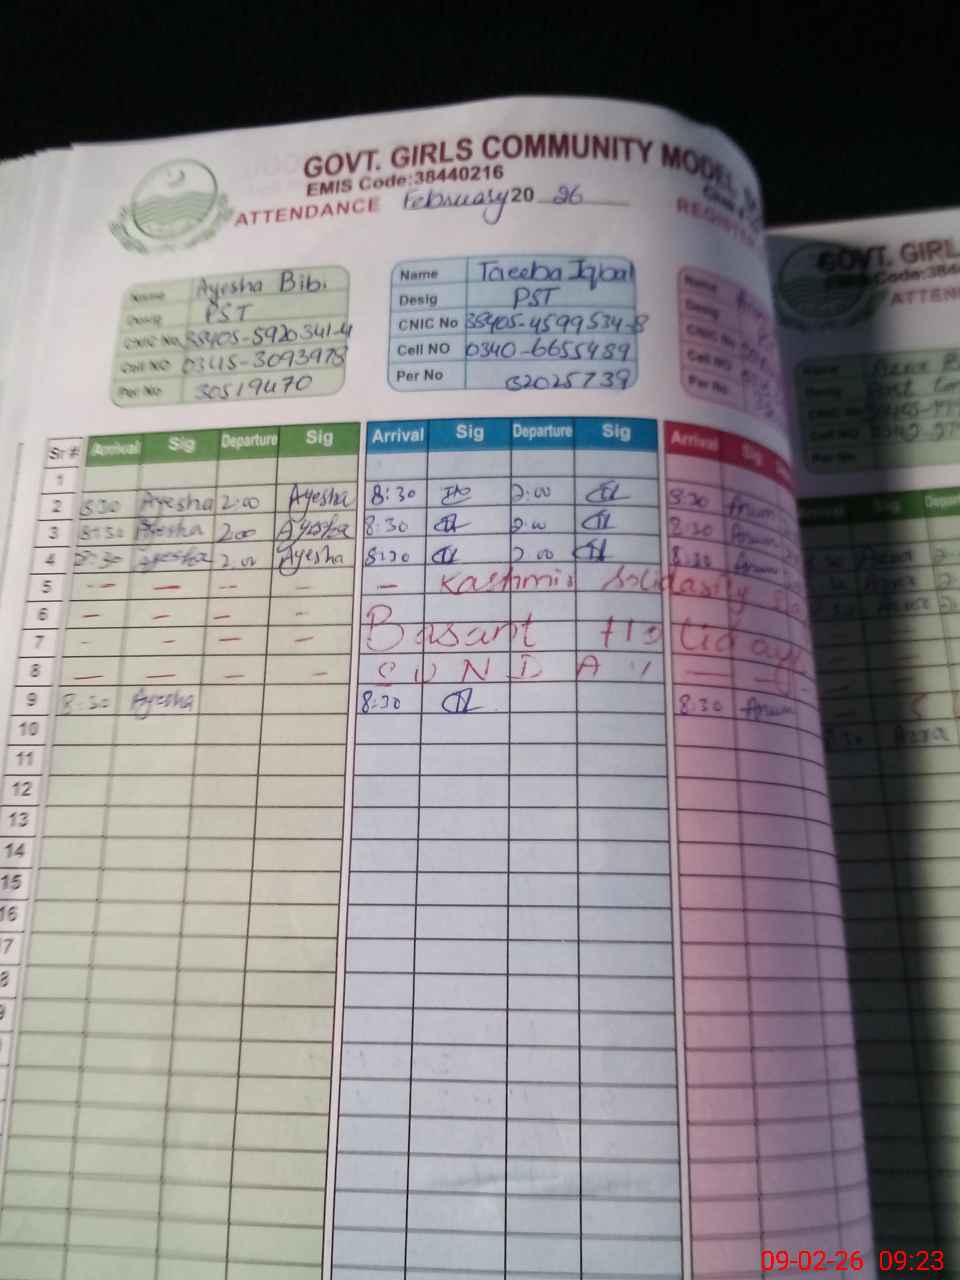 GOVT. GIRLS COMMUNITY MODEL
EMIS Code:38440216
ATTENDANCE February 20 26 REGISTER
GOVT. GIRL
Code:384
ATTEN
Name Ayesha Bibi
Desig PST
CNIC No 38405-5920341-4
Cell NO 03415-3093978
Per No 30519470
Name Taeeba Iqbal
Desig PST
CNIC No 38405-4599534-8
Cell NO 0340-6655489
Per No 32025739
Name
Desig
CNIC No
Cell NO
Per No
Sr # Arrival Sig Departure Sig Arrival Sig Departure Sig Arrival Sig
1
2 8:30 Ayesha 2:00 Ayesha 8:30 2:00 8:30 Anum
3 8:30 Ayesha 2:00 Ayesha 8:30 2:00 8:30 Anum
4 8:30 Ayesha 2:00 Ayesha 8:30 2:00 8:30 Anum
5 -- — -- - — Kashmir Solidarity
6 — — — -
7 - — — - Basant Holiday
8 — — — - SUNDAY —
9 8:30 Ayesha 8:30 8:30 Anum
10
11
12
13
14
15
16
7
8
9
09-02-26 09:23